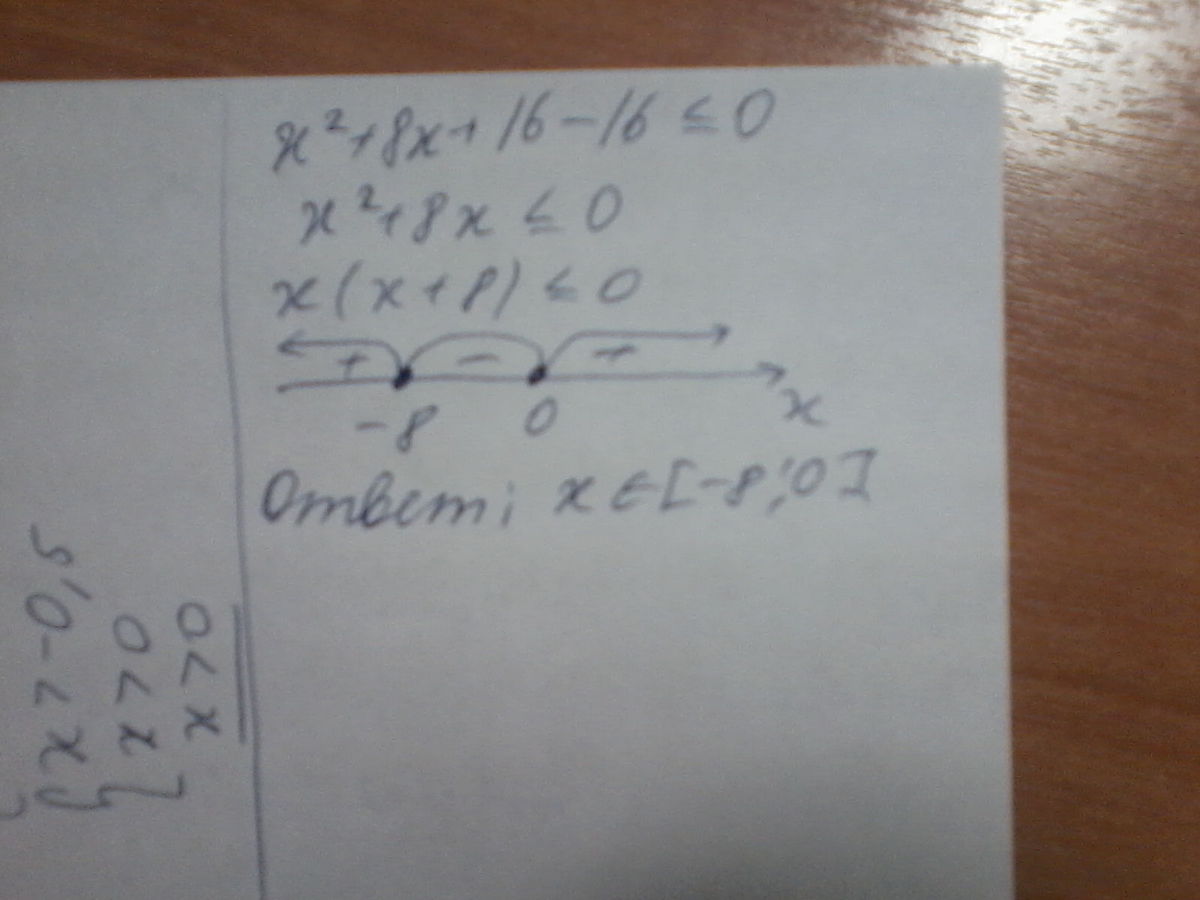 x²+8x+16-16≤0
x²+8x≤0
x(x+8)≤0
+ - +
-8 0 x
Ответ; x∈[-8;0]
x>0
x>0